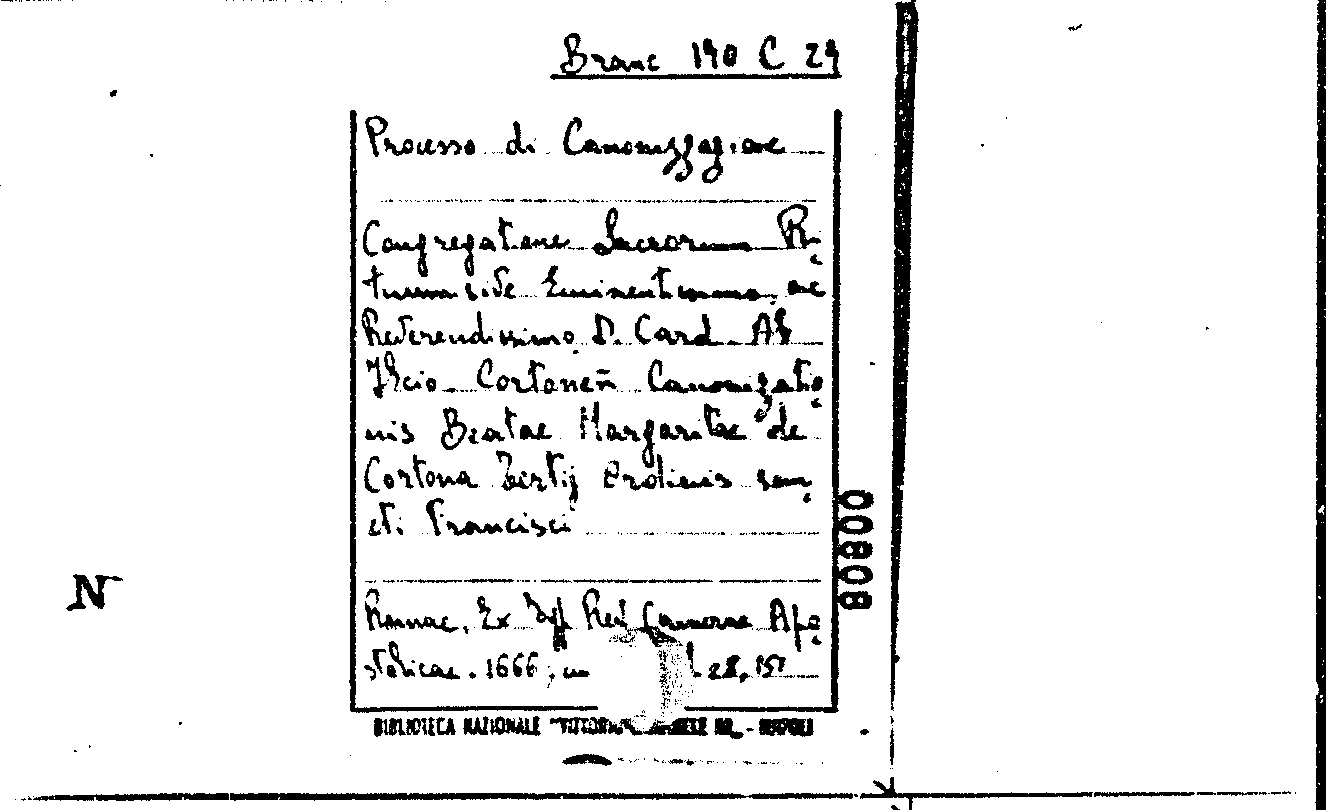 Branc 190 C 29
Processo di Canonizzazione
Congregatione Sacrorum Ri-
tuum sive Eminentissimo, ac
Reverendissimo D. Card. Al
Cortoneñ Canonizatio-
nis Beatae Margaritae de
Cortona Tertij Ordinis san-
cti Francisci
Romae, Ex Typ. Reu. Camerae Apo-
stolicae. 1666, in 28, 15
BIBLIOTECA NAZIONALE - NAPOLI
00808
N